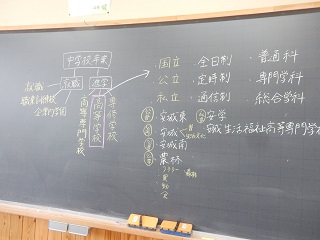 中学校卒業
就職
進学
就職
職業訓練校
企業内学園
高等専門学校
高等学校
専修学校
国立 全日制 ・普通科
公立 定時制 ・専門学科
私立 ・通信制 ・総合学科
安城東
安城
安城南
農林
安学
安城生活福祉高等専門学校